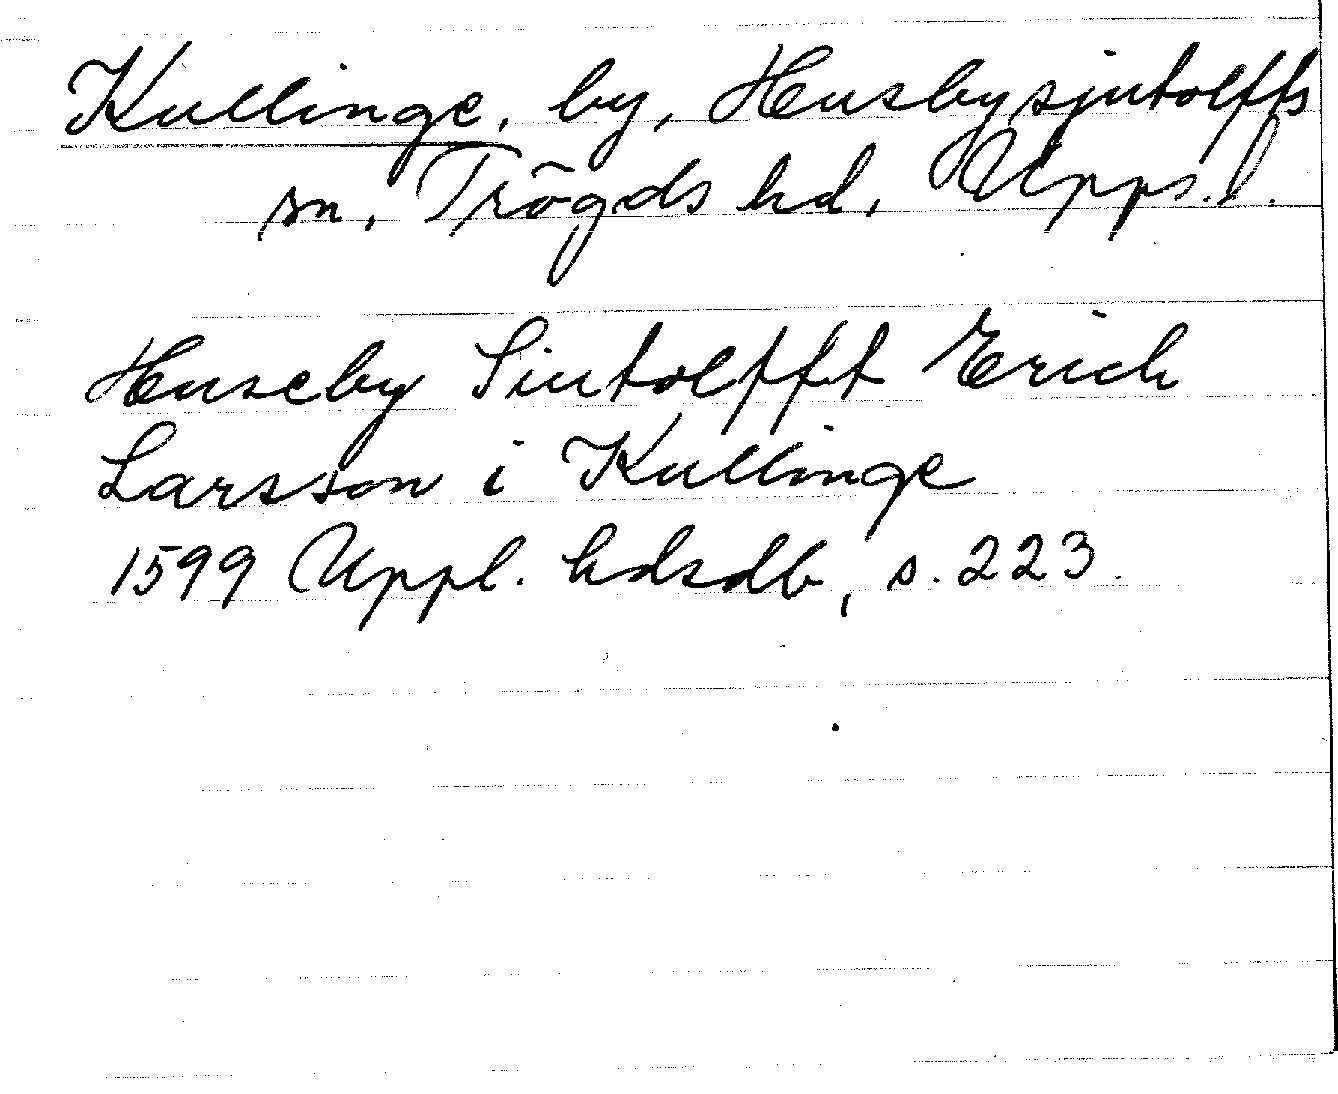 Kullinge, by, Husbysjutolfts
sn, Trögds hd, Upps. l.
Huseby Siutolfft Erich
Larsson i Kullinge
1599 Uppl. hdsdb, s. 223.